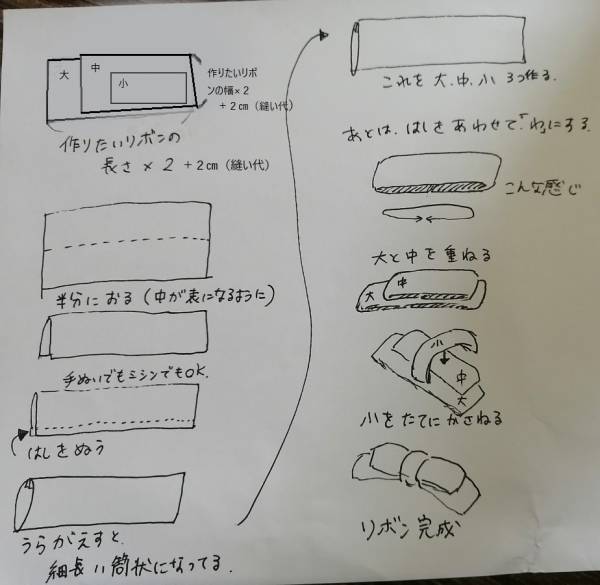 大
中
小
作りたいリボ
ンの幅×2
+2cm（縫い代）
作りたいリボンの
長さ×2 +2cm（縫い代）
半分におる（中が表になるように）
手ぬいでもミシンでもOK.
はしをぬう
うらがえすと、
細長い筒状になってる.
これを 大、中、小 3つ作る.
あとは、はしをあわせて「わ」にする.
こんな感じ
大と中を重ねる
大
中
小
中
大
小をたてにかさねる
リボン完成